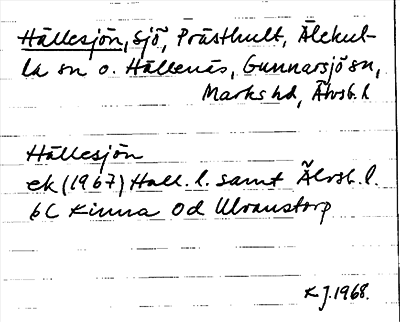 Hällesjön, sjö, Prästhult, Älekul-
la sn o. Hällenäs, Gunnarsjö sn,
Marks hd, Älvsb. l
Hällesjön
ek (1967) Hall. l. samt Älvsb. l.
6C Kinna 0d Ulvanstorp
K J. 1968.